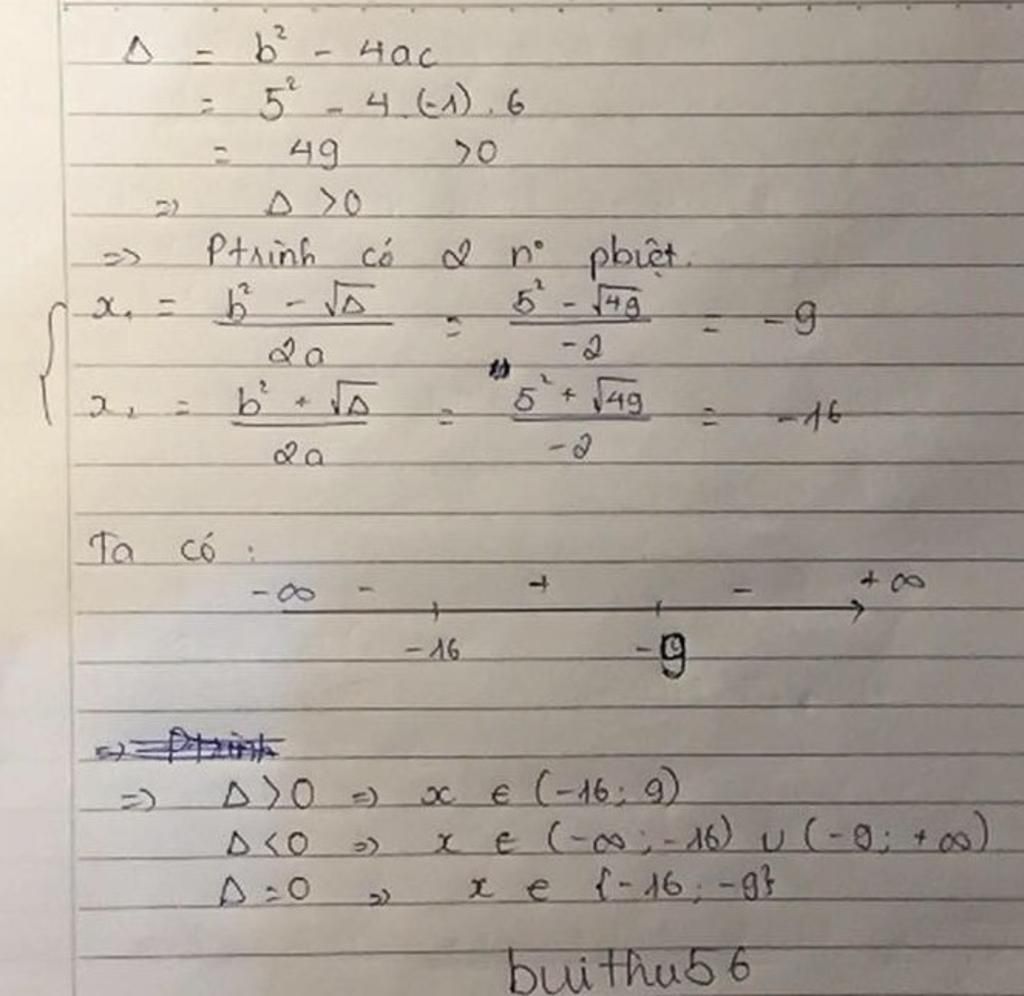 Δ = b² - 4ac
= 5² - 4.(-1).6
= 49 >0
=> Δ >0
=> Ptrình có 2 n° pbiệt.
x₁ = (b² - √Δ)/2a = (5² - √49)/-2 = -9
x₂ = (b² + √Δ)/2a = (5² + √49)/-2 = -16
Ta có :
-∞ - + - +∞
-16 -9
=> Ptrình
=> Δ>0 => x ∈ (-16; 9)
Δ<0 => x ∈ (-∞; -16) ∪ (-9; +∞)
Δ=0 => x ∈ {-16; -9}
buithu56